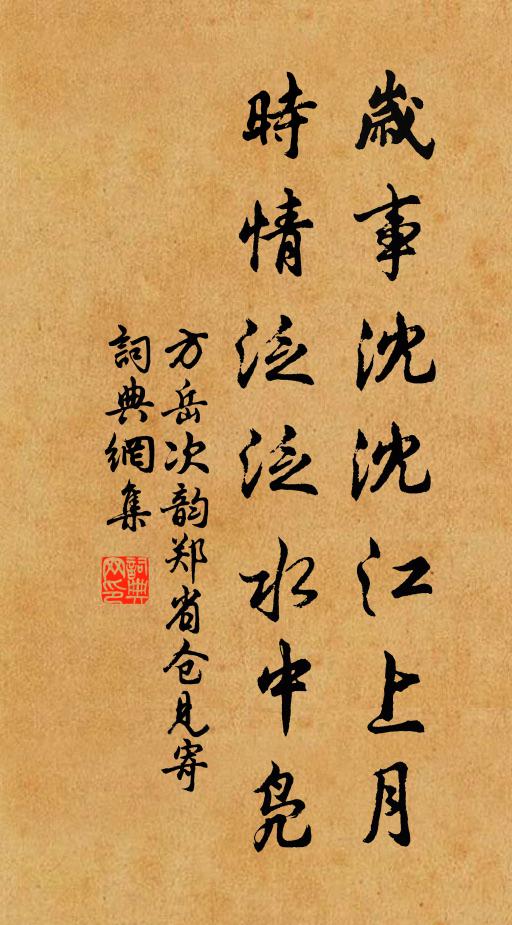 歲事沈沈江上月
時情泛泛水中鳧
方岳次韵郑省仓见寄
詞典網集
詞典网印